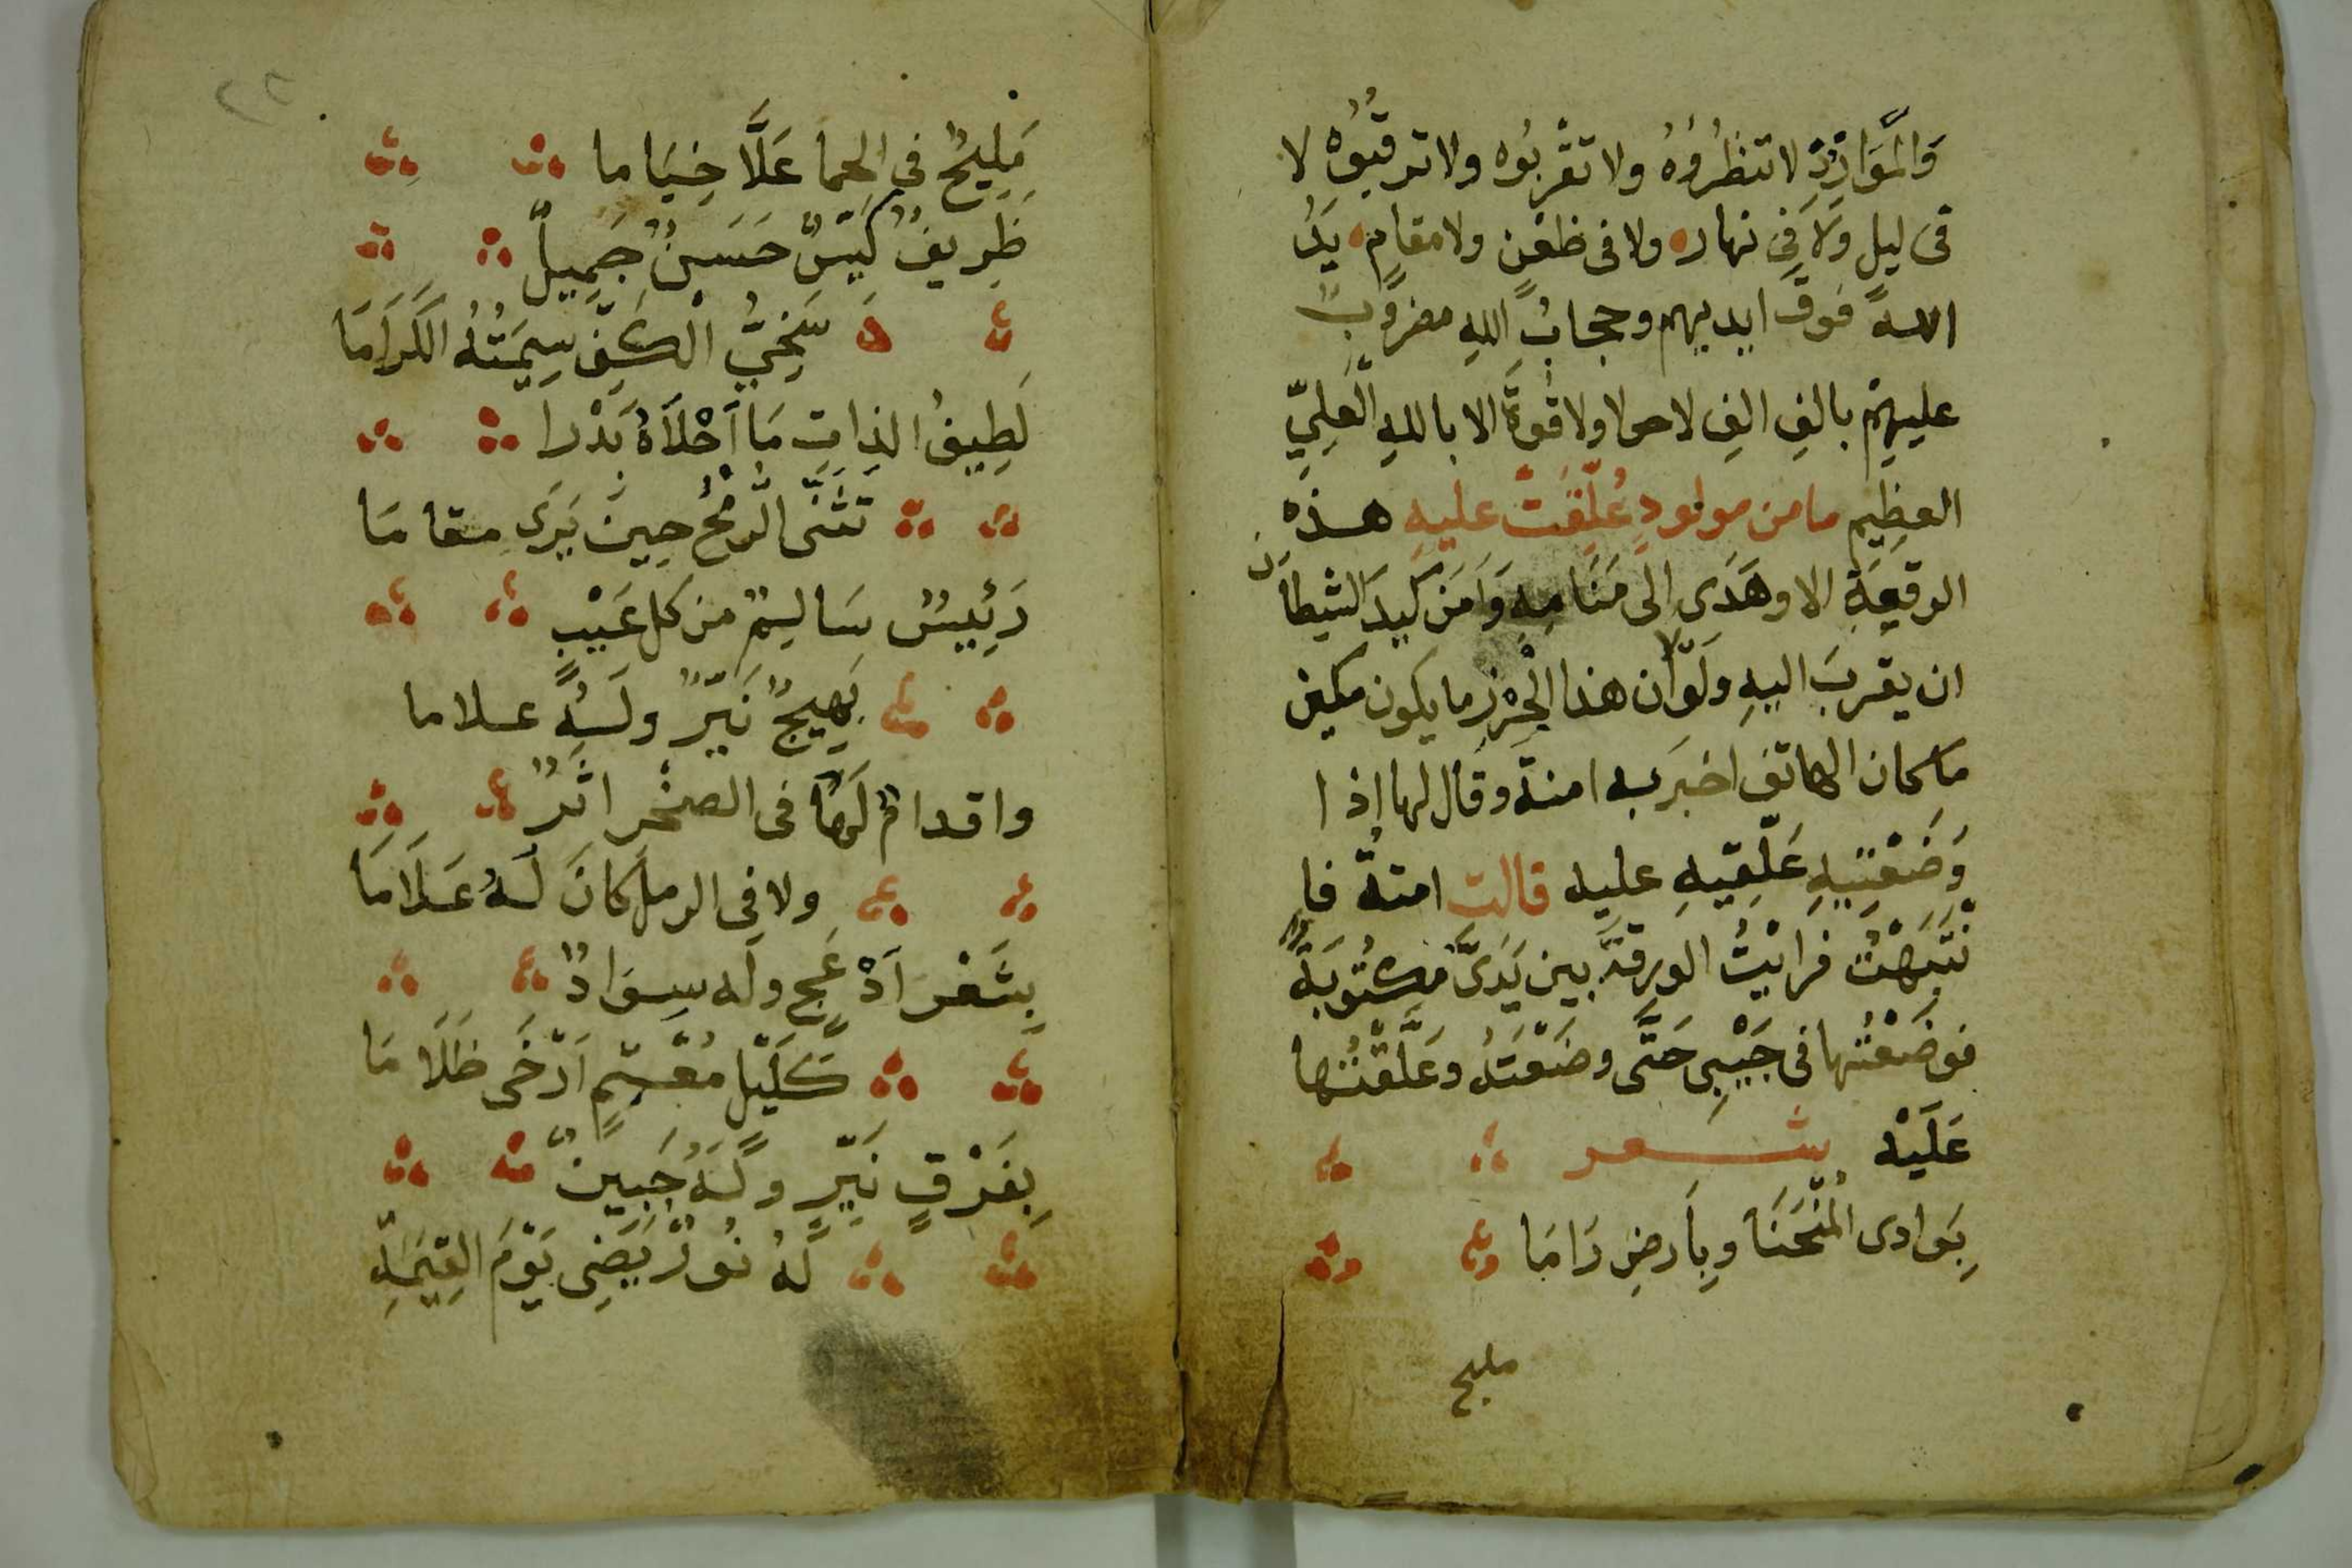 وَالْمَوَارِدِ لا تنظُرُوُهُ ولا تقْربُوه ولا ترقبُوُهْ لا
فى ليل وَلَا فِى نهاره ولا فى ظعْنٍ ولا مقامٍ، يَدُ
اللهِ فَوقَ ايديهم وحجابُ اللهِ مضروبٌ
عليهِمْ بالفِ الفِ لاحولا ولا قُوةَ الا باللهِ الْعَلِيِّ
العظِيم ما من مولودٍ عُلِّقَتْ عليهِ هذه
الرقعَةِ الا وهَدَى الى مَنَامِهِ وَاَمَنَ كيدَ الشيطان
ان يقربَ اليهِ ولَوْلا ان هذا الْحِرْزِ ما يكون مكين
ما كان الهاتف اخبرَ به امنة وقال لها اذا
وَضَعْتيِيهِ عَلِّقيهِ عليه قالت امنةُ فا
نْتَبَهْتُ فرايْتُ الورقةَ بين يَدَىَّ مكتُوبَةً
فوضَعْتُها فى جَيْبِى حَتَّى وضَعْتَهُ وعَلَّقْتُها
عَلَيْه شعر
بِوَادى الْمُنْحَنَا وبِاَرضِ رَامَا
مليح
٢٢
مَلِيحٌ فِي الحِما عَلَّا خِيَاما
ظَرِيفٌ كَيّسٌ حَسَنٌ جَمِيلٌ
سَخِىُّ الْكَفِّ سِيمَتُهُ الكَرَامَا
لَطِيفُ الذاتِ مَا اَحْلَاهُ بَدْرا
تَثَنَّى الرُّمْحُ حِينَ يَرَى مقامَا
رَئِيسٌ سَالِمٌ من كل عَيْبٍ
بَهِيجٌ نَيّرٌ ولَهُ علاما
واقدامٌ لَهَا فى الصخْر اثَرٌ
ولا فِى الرمل كانَ لَهُ عَلَامَا
بِشَعْر اَدْعَجٍ وله سِوَادٌ
كَلَيْلٍ مُعْتِمٍ اَرْخَى ظَلَامَا
بِفَرْقٍ نَيِّرٍ ولَهُ جَبِينٌ
لَهُ نُورٌ يَضِى يَوْمَ القِيَمَةِ